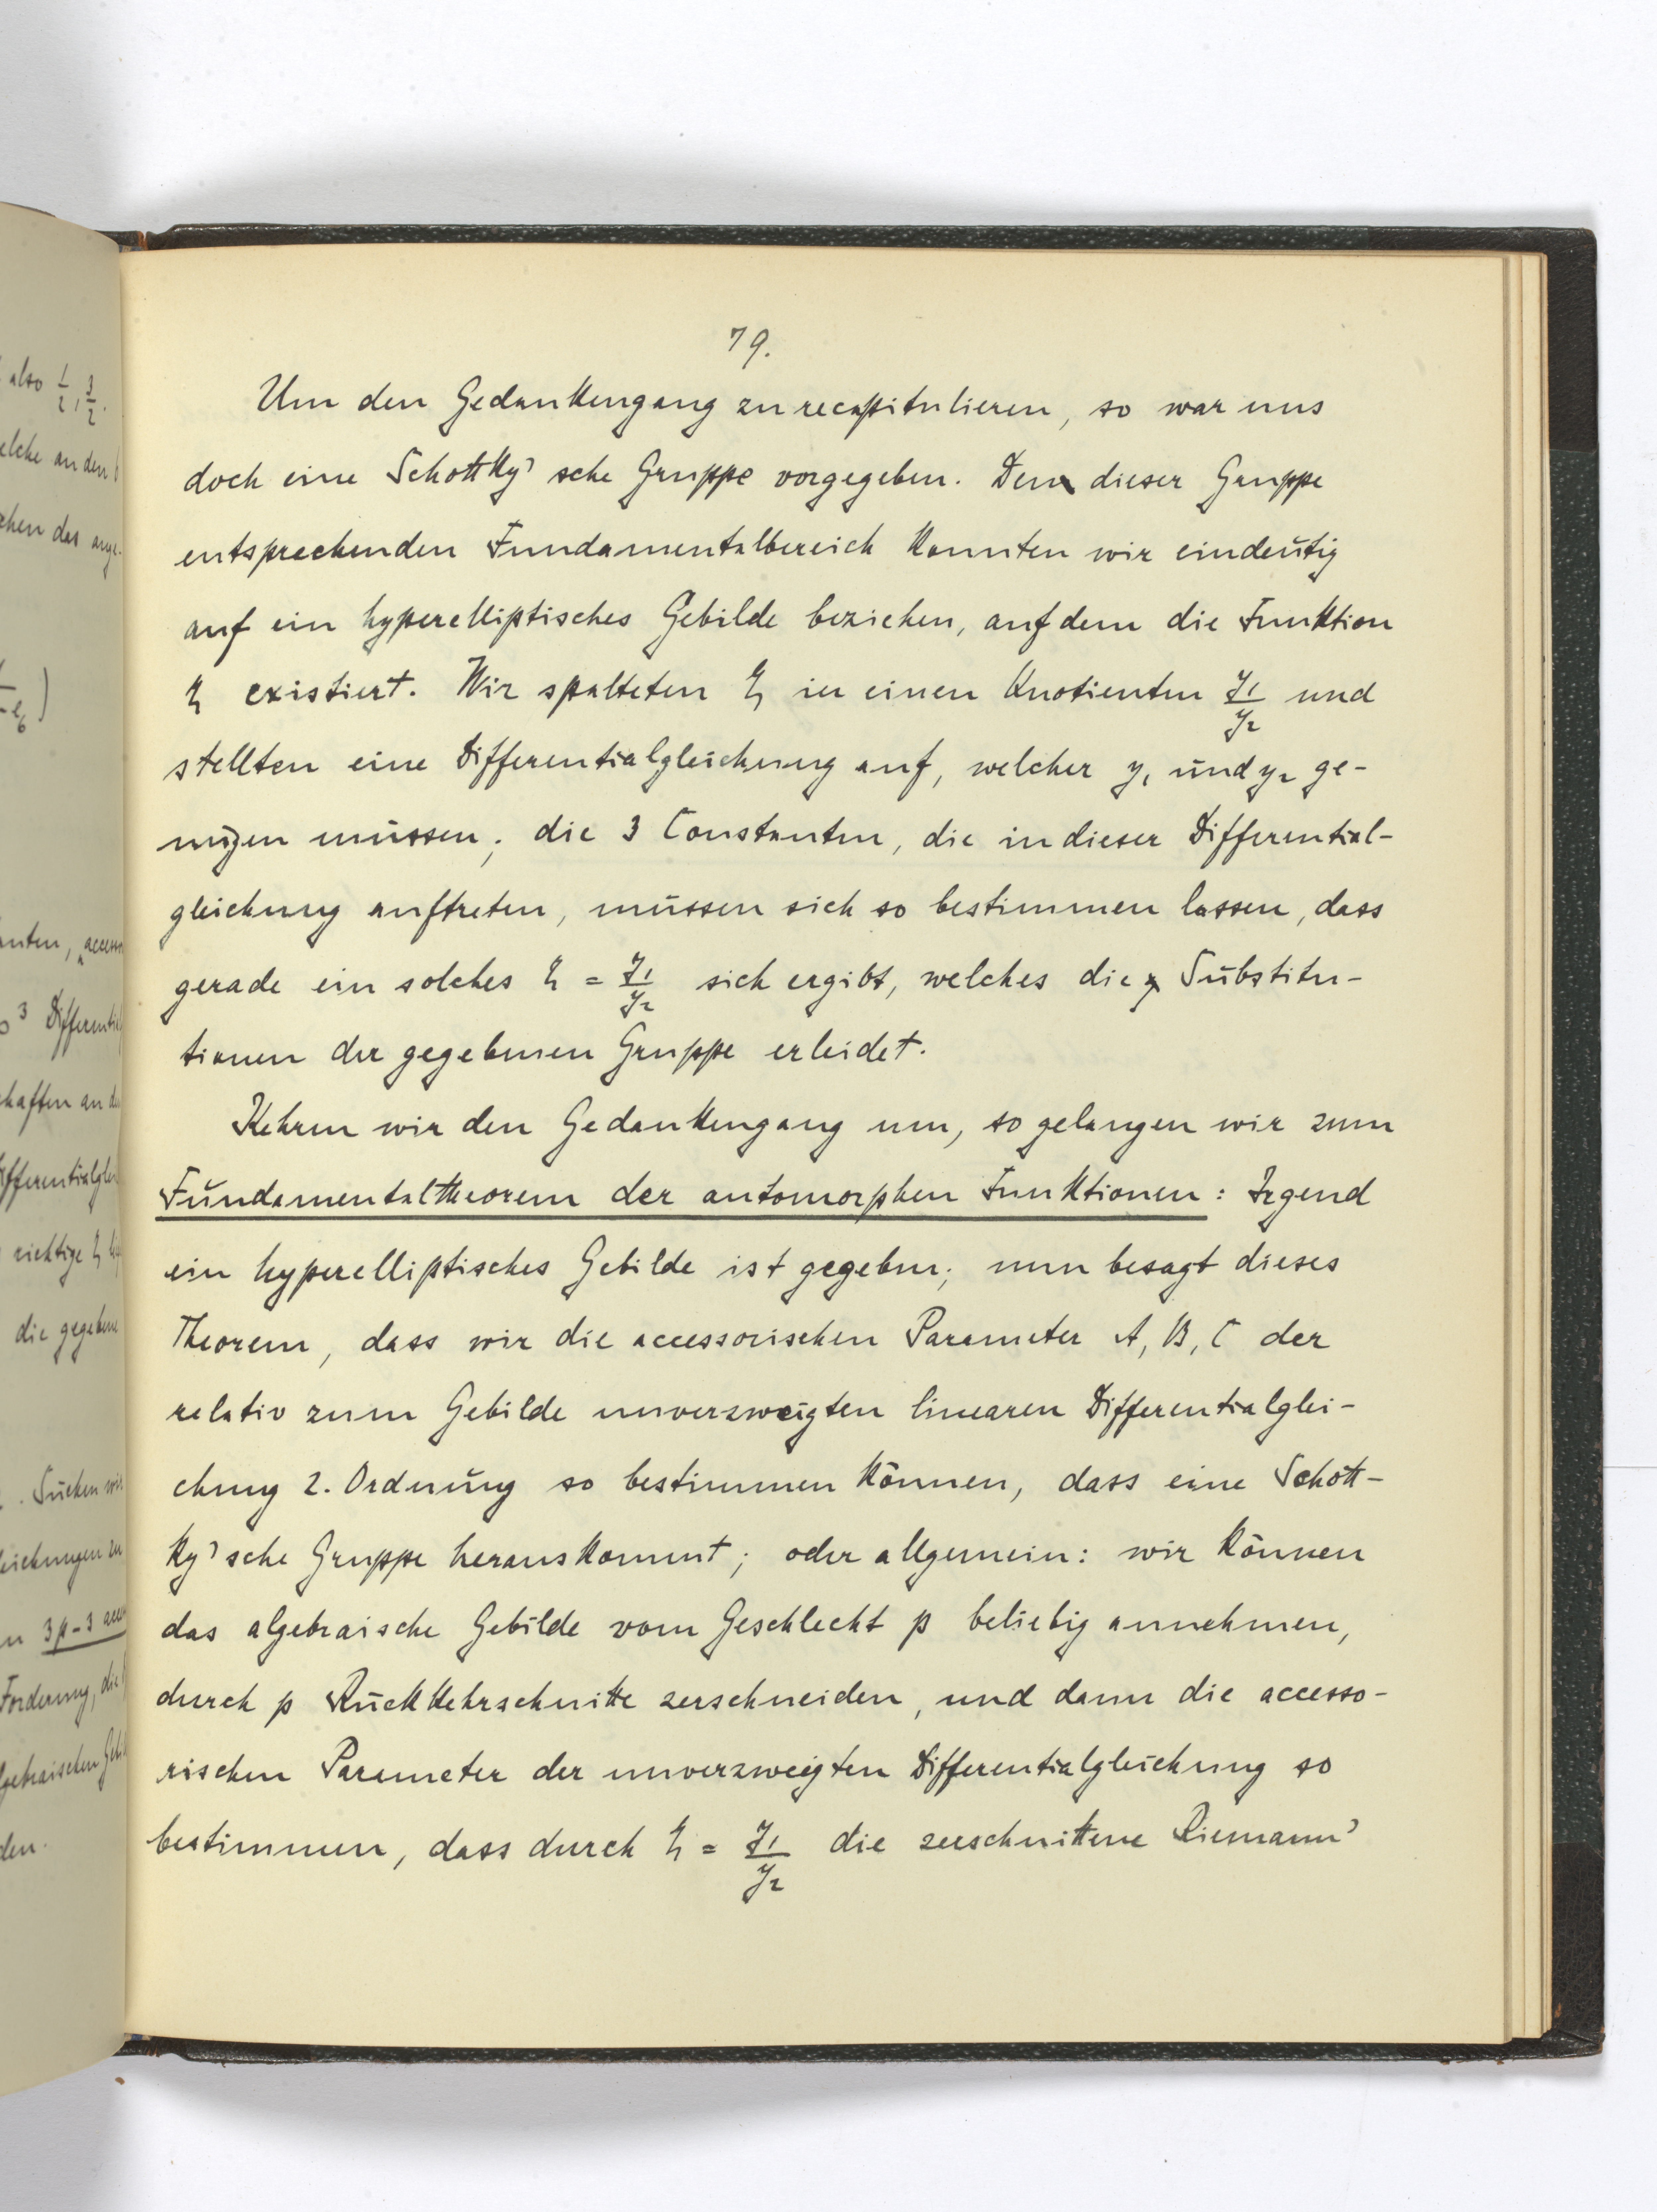 79.
Um den Gedankengang zu recapitulieren, so war uns
doch eine Schottky'sche Gruppe vorgegeben. Den dieser Gruppe
entsprechenden Fundamentalbereich konnten wir eindeutig
auf ein hyperelliptisches Gebilde beziehen, auf dem die Funktion
η existiert. Wir spalteten η in einen Quotienten y₁/y₂ und
stellten eine Differentialgleichung auf, welcher y₁ und y₂ ge-
nügen müssen; die 3 Constanten, die in dieser Differential-
gleichung auftreten, müssen sich so bestimmen lassen, dass
gerade ein solches η = y₁/y₂ sich ergibt, welches die Substitu-
tionen der gegebenen Gruppe erleidet.
Kehren wir den Gedankengang um, so gelangen wir zum
Fundamentaltheorem der automorphen Funktionen: Irgend
ein hyperelliptisches Gebilde ist gegeben; nun besagt dieses
Theorem, dass wir die accessorischen Parameter A, B, C der
relativ zum Gebilde unverzweigten linearen Differentialglei-
chung 2. Ordnung so bestimmen können, dass eine Schott-
ky'sche Gruppe herauskommt; oder allgemein: wir können
das algebraische Gebilde vom Geschlecht p beliebig annehmen,
durch p Rückkehrschnitte zerschneiden, und dann die accesso-
rischen Parameter der unverzweigten Differentialgleichung so
bestimmen, dass durch η = y₁/y₂ die zerschnittene Riemann'